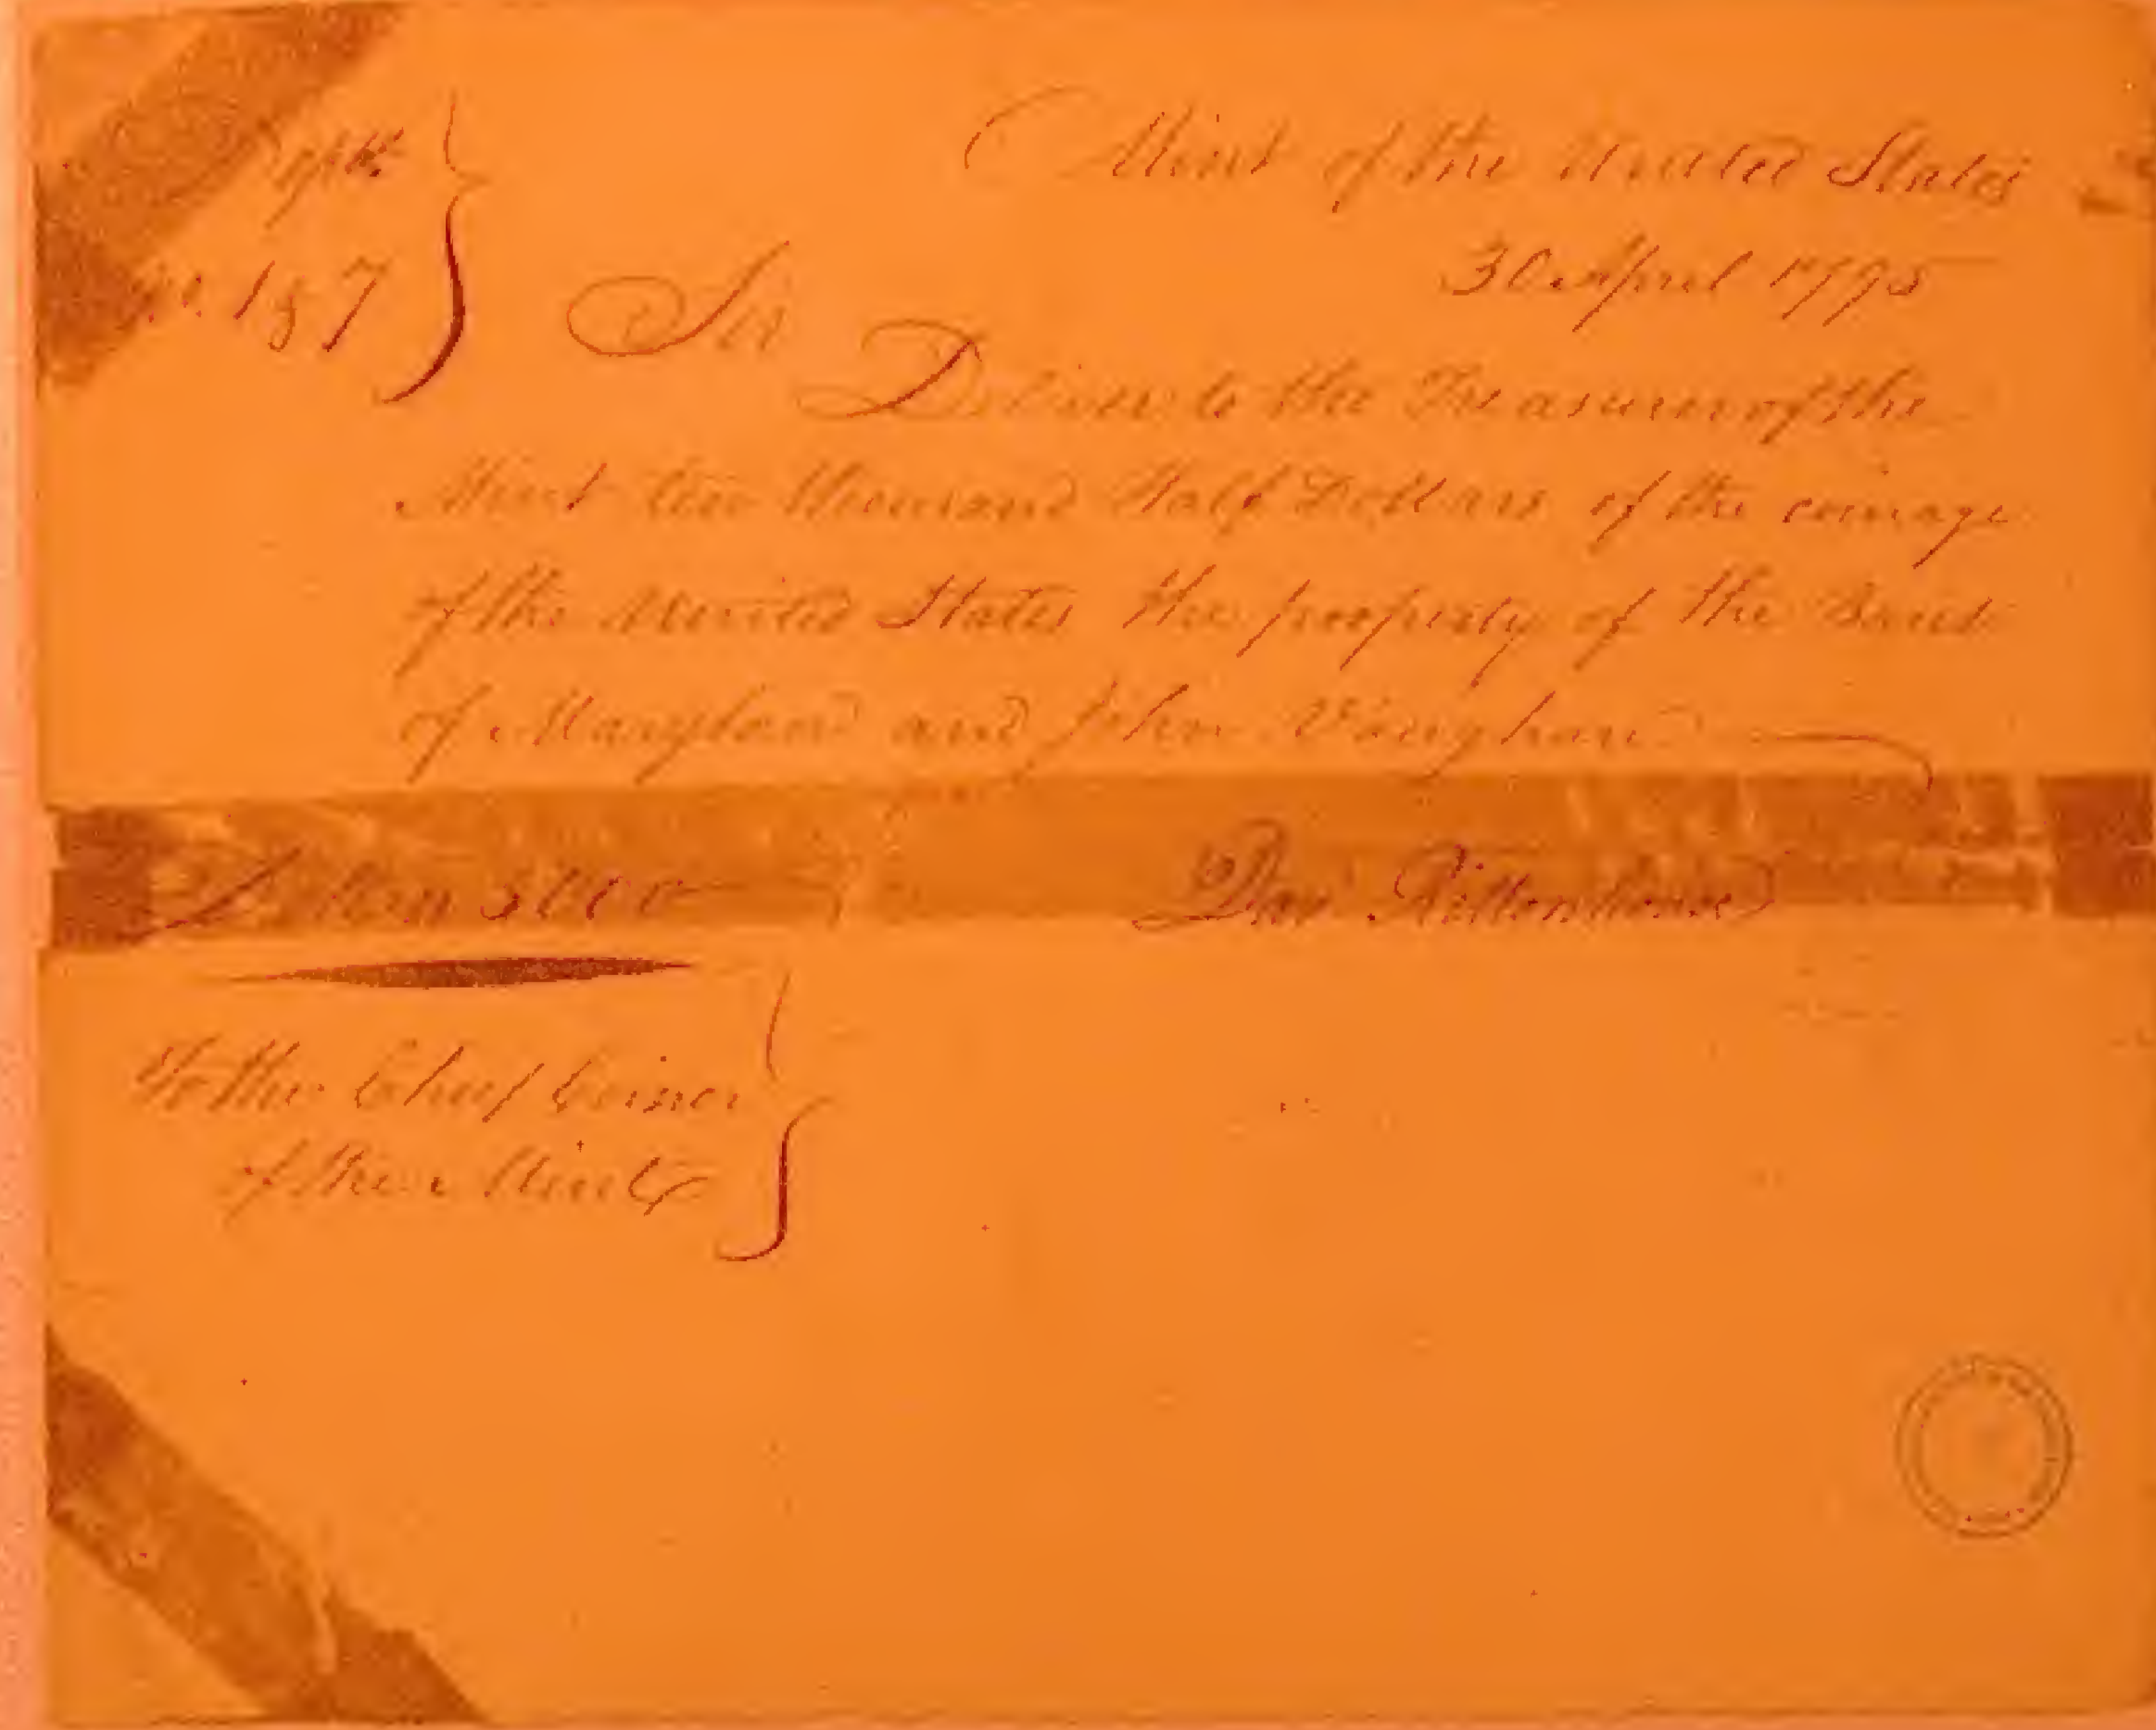 Mint of the United States
30 April 1795
187
Sir
Deliver to the Treasurer of the
Mint ten thousand Half Dollars of the coinage
of the United States the property of the Bank
of Maryland and John Vaughan
Dollars 5000
Dav Rittenhouse
To the Chief Coiner
of the Mint